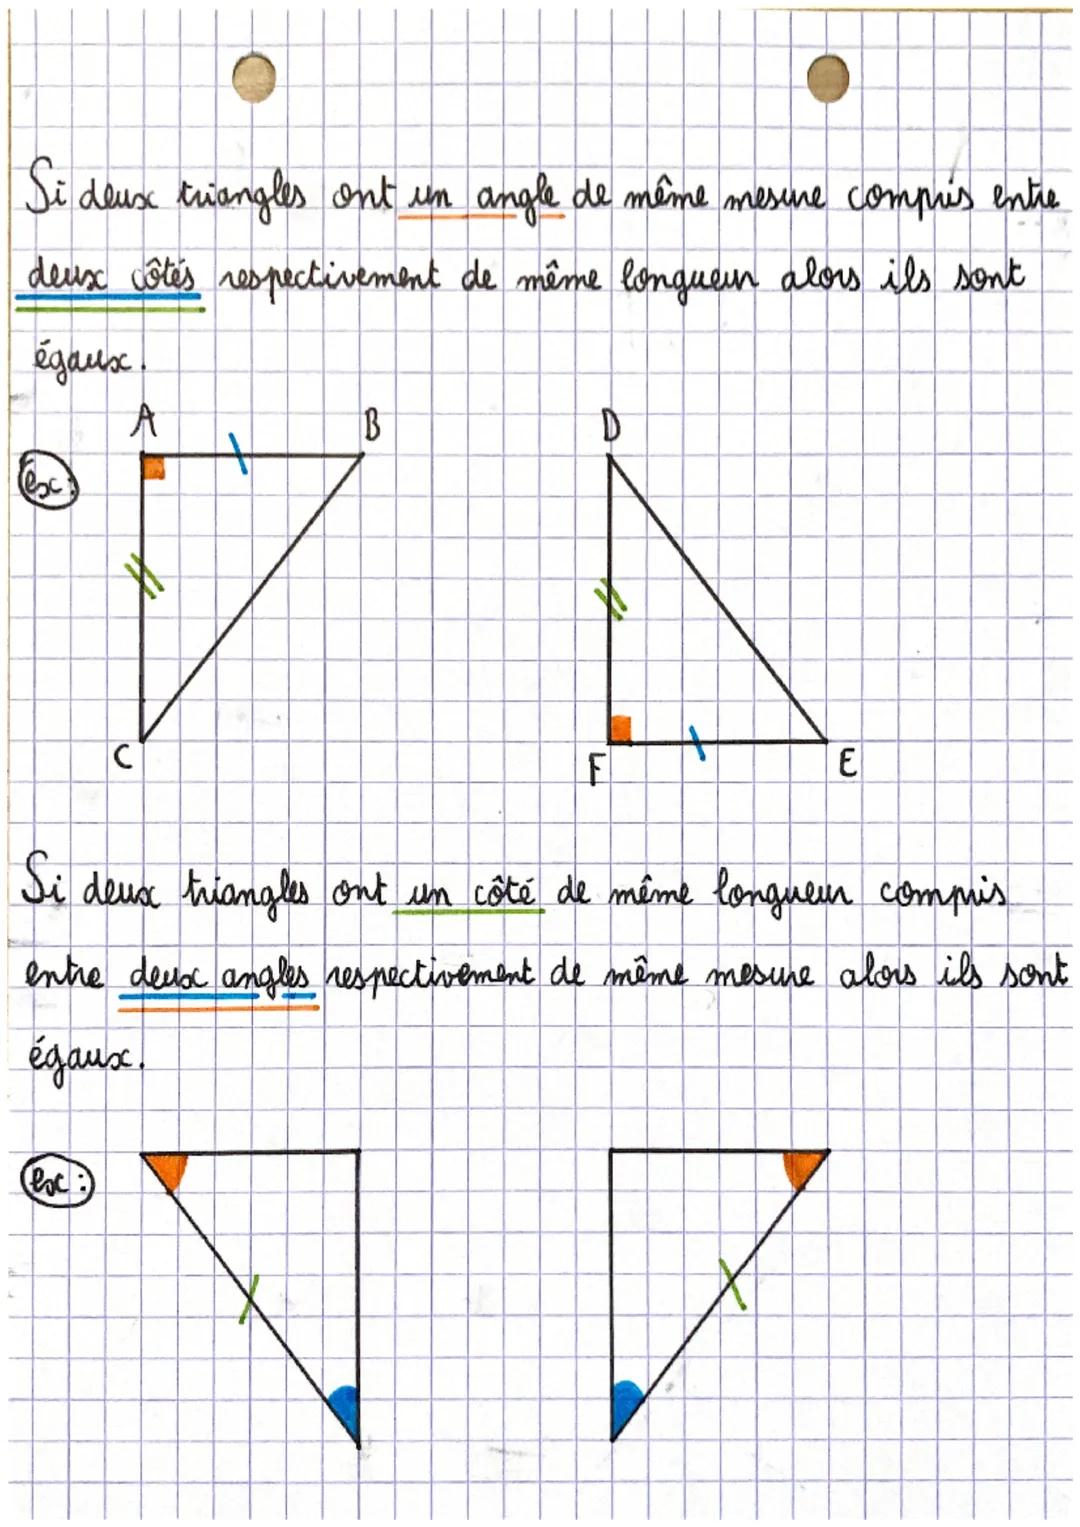 Si deux triangles ont un angle de même mesure compris entre
deux côtés respectivement de même longueur alors ils sont
égaux.
A B D
ex:
C F E
Si deux triangles ont un côté de même longueur compris
entre deux angles respectivement de même mesure alors ils sont
égaux.
ex: